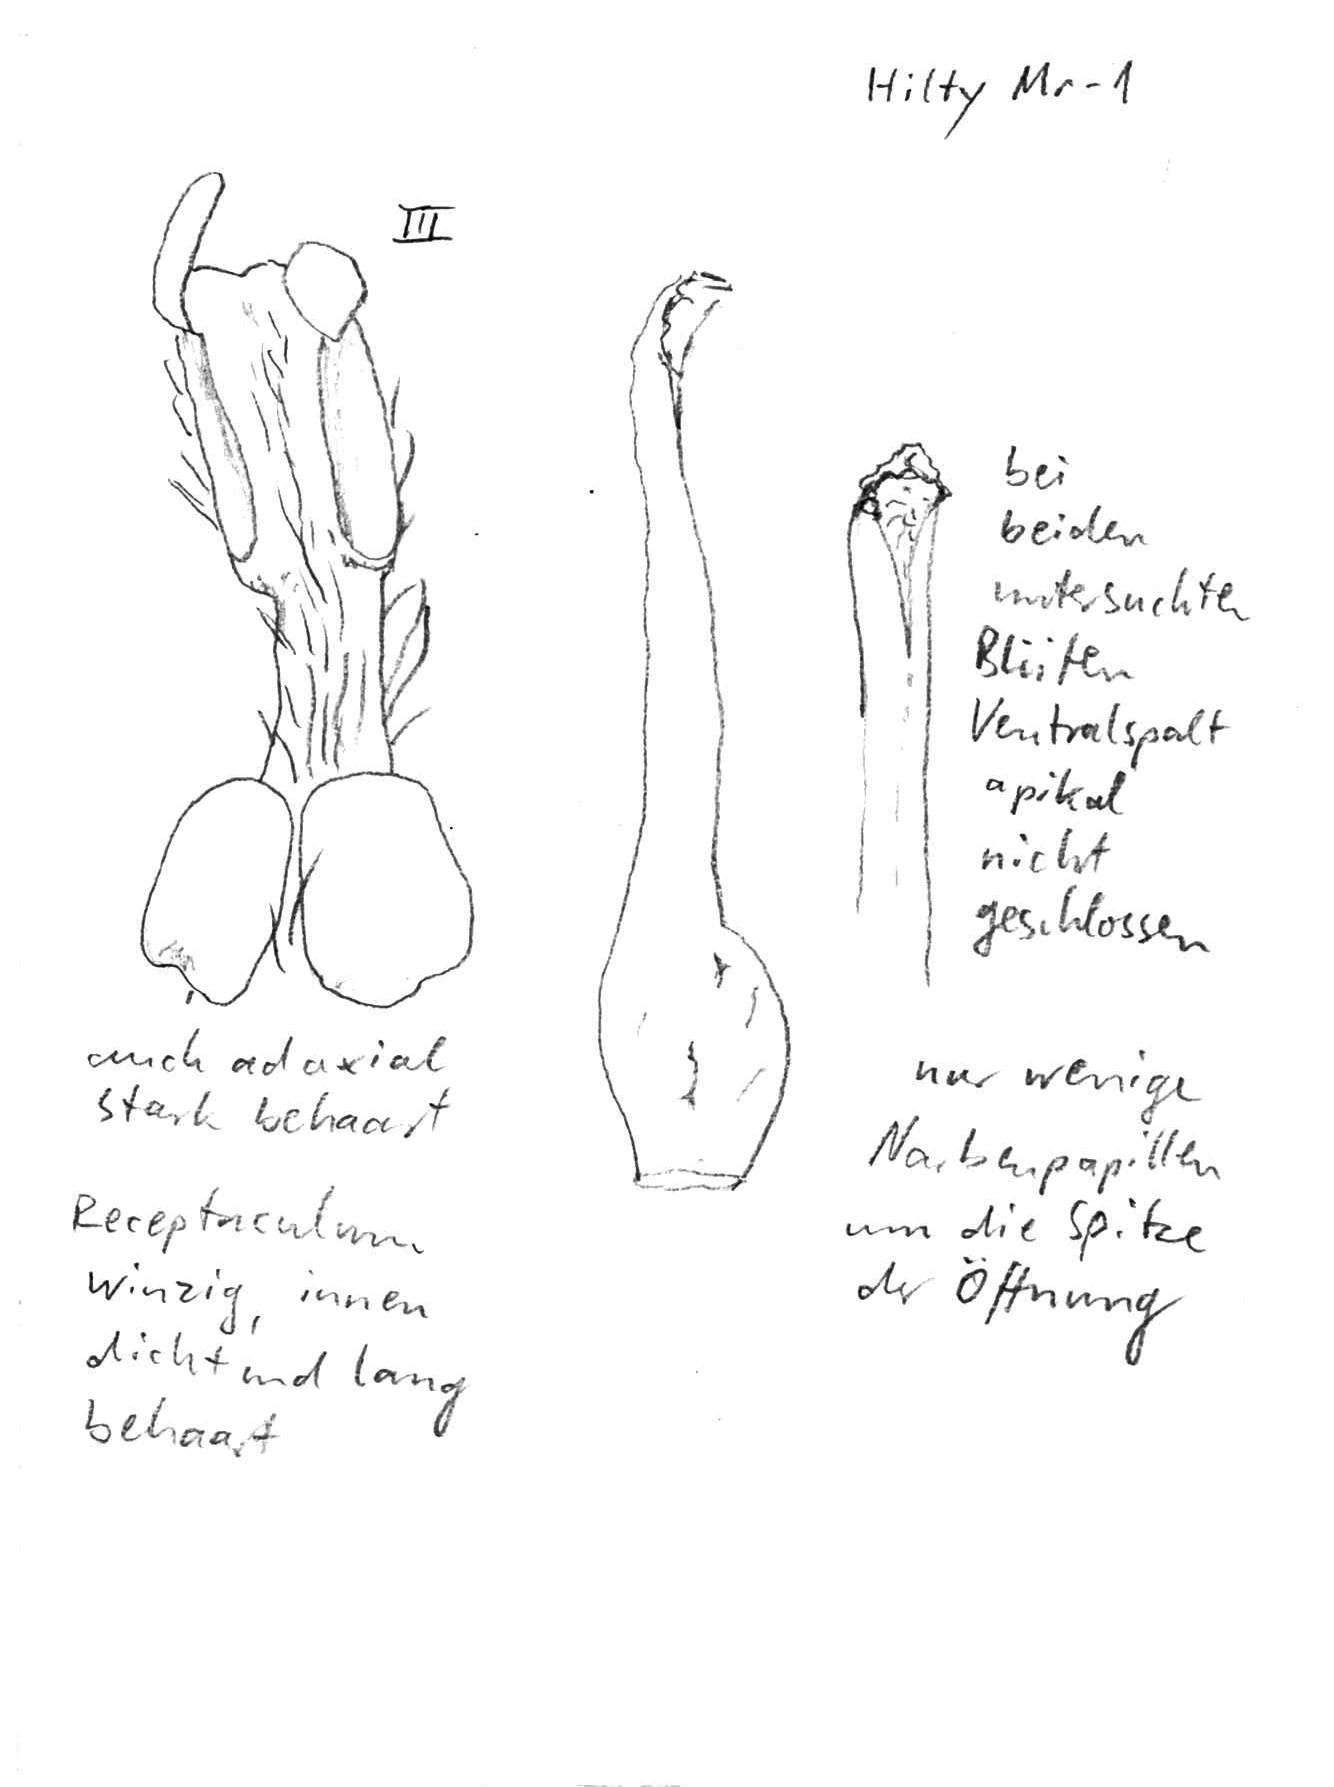 Hilty Mr-1
III
bei
beiden
untersuchten
Blüten
Ventralspalt
apikal
nicht
geschlossen
auch adaxial
stark behaart
Receptaculum
winzig, innen
dicht und lang
behaart
nur wenige
Narbenpapillen
um die Spitze
der Öffnung